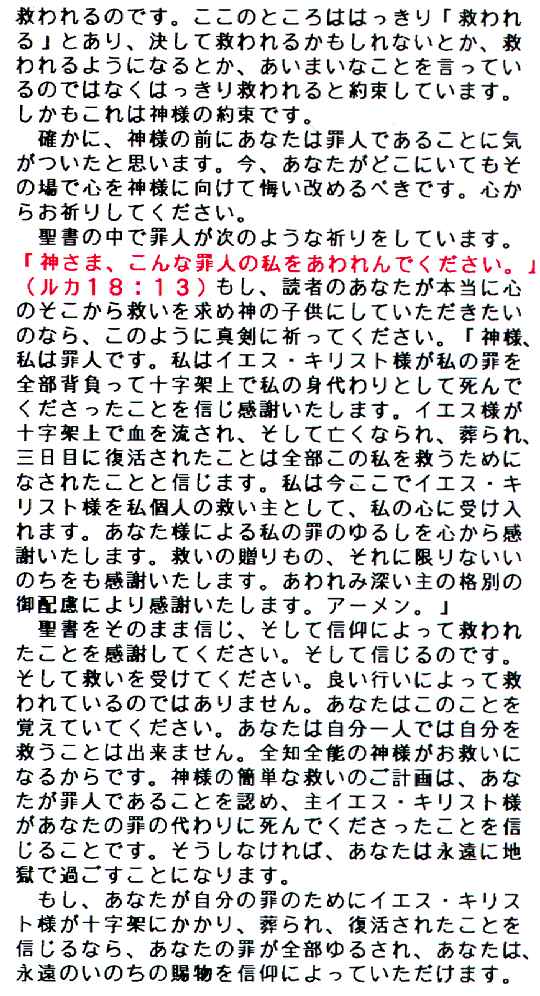 救われるのです。ここのところははっきり「救われ
る」とあり、決して救われるかもしれないとか、救
われるようになるとか、あいまいなことを言ってい
るのではなくはっきり救われると約束しています。
しかもこれは神様の約束です。
確かに、神様の前にあなたは罪人であることに気
がついたと思います。今、あなたがどこにいてもそ
の場で心を神様に向けて悔い改めるべきです。心か
らお祈りしてください。
聖書の中で罪人が次のような祈りをしています。
「神さま、こんな罪人の私をあわれんでください。」
（ルカ１８：１３）もし、読者のあなたが本当に心
のそこから救いを求め神の子供にしていただきたい
のなら、このように真剣に祈ってください。「神様、
私は罪人です。私はイエス・キリスト様が私の罪を
全部背負って十字架上で私の身代わりとして死んで
くださったことを信じ感謝いたします。イエス様が
十字架上で血を流され、そして亡くなられ、葬られ、
三日目に復活されたことは全部この私を救うために
なされたことと信じます。私は今ここでイエス・キ
リスト様を私個人の救い主として、私の心に受け入
れます。あなた様による私の罪のゆるしを心から感
謝いたします。救いの贈りもの、それに限りないい
のちをも感謝いたします。あわれみ深い主の格別の
御配慮により感謝いたします。アーメン。」
聖書をそのまま信じ、そして信仰によって救われ
たことを感謝してください。そして信じるのです。
そして救いを受けてください。良い行いによって救
われているのではありません。あなたはこのことを
覚えていてください。あなたは自分一人では自分を
救うことは出来ません。全知全能の神様がお救いに
なるからです。神様の簡単な救いのご計画は、あな
たが罪人であることを認め、主イエス・キリスト様
があなたの罪の代わりに死んでくださったことを信
じることです。そうしなければ、あなたは永遠に地
獄で過ごすことになります。
もし、あなたが自分の罪のためにイエス・キリス
ト様が十字架にかかり、葬られ、復活されたことを
信じるなら、あなたの罪が全部ゆるされ、あなたは、
永遠のいのちの賜物を信仰によっていただけます。